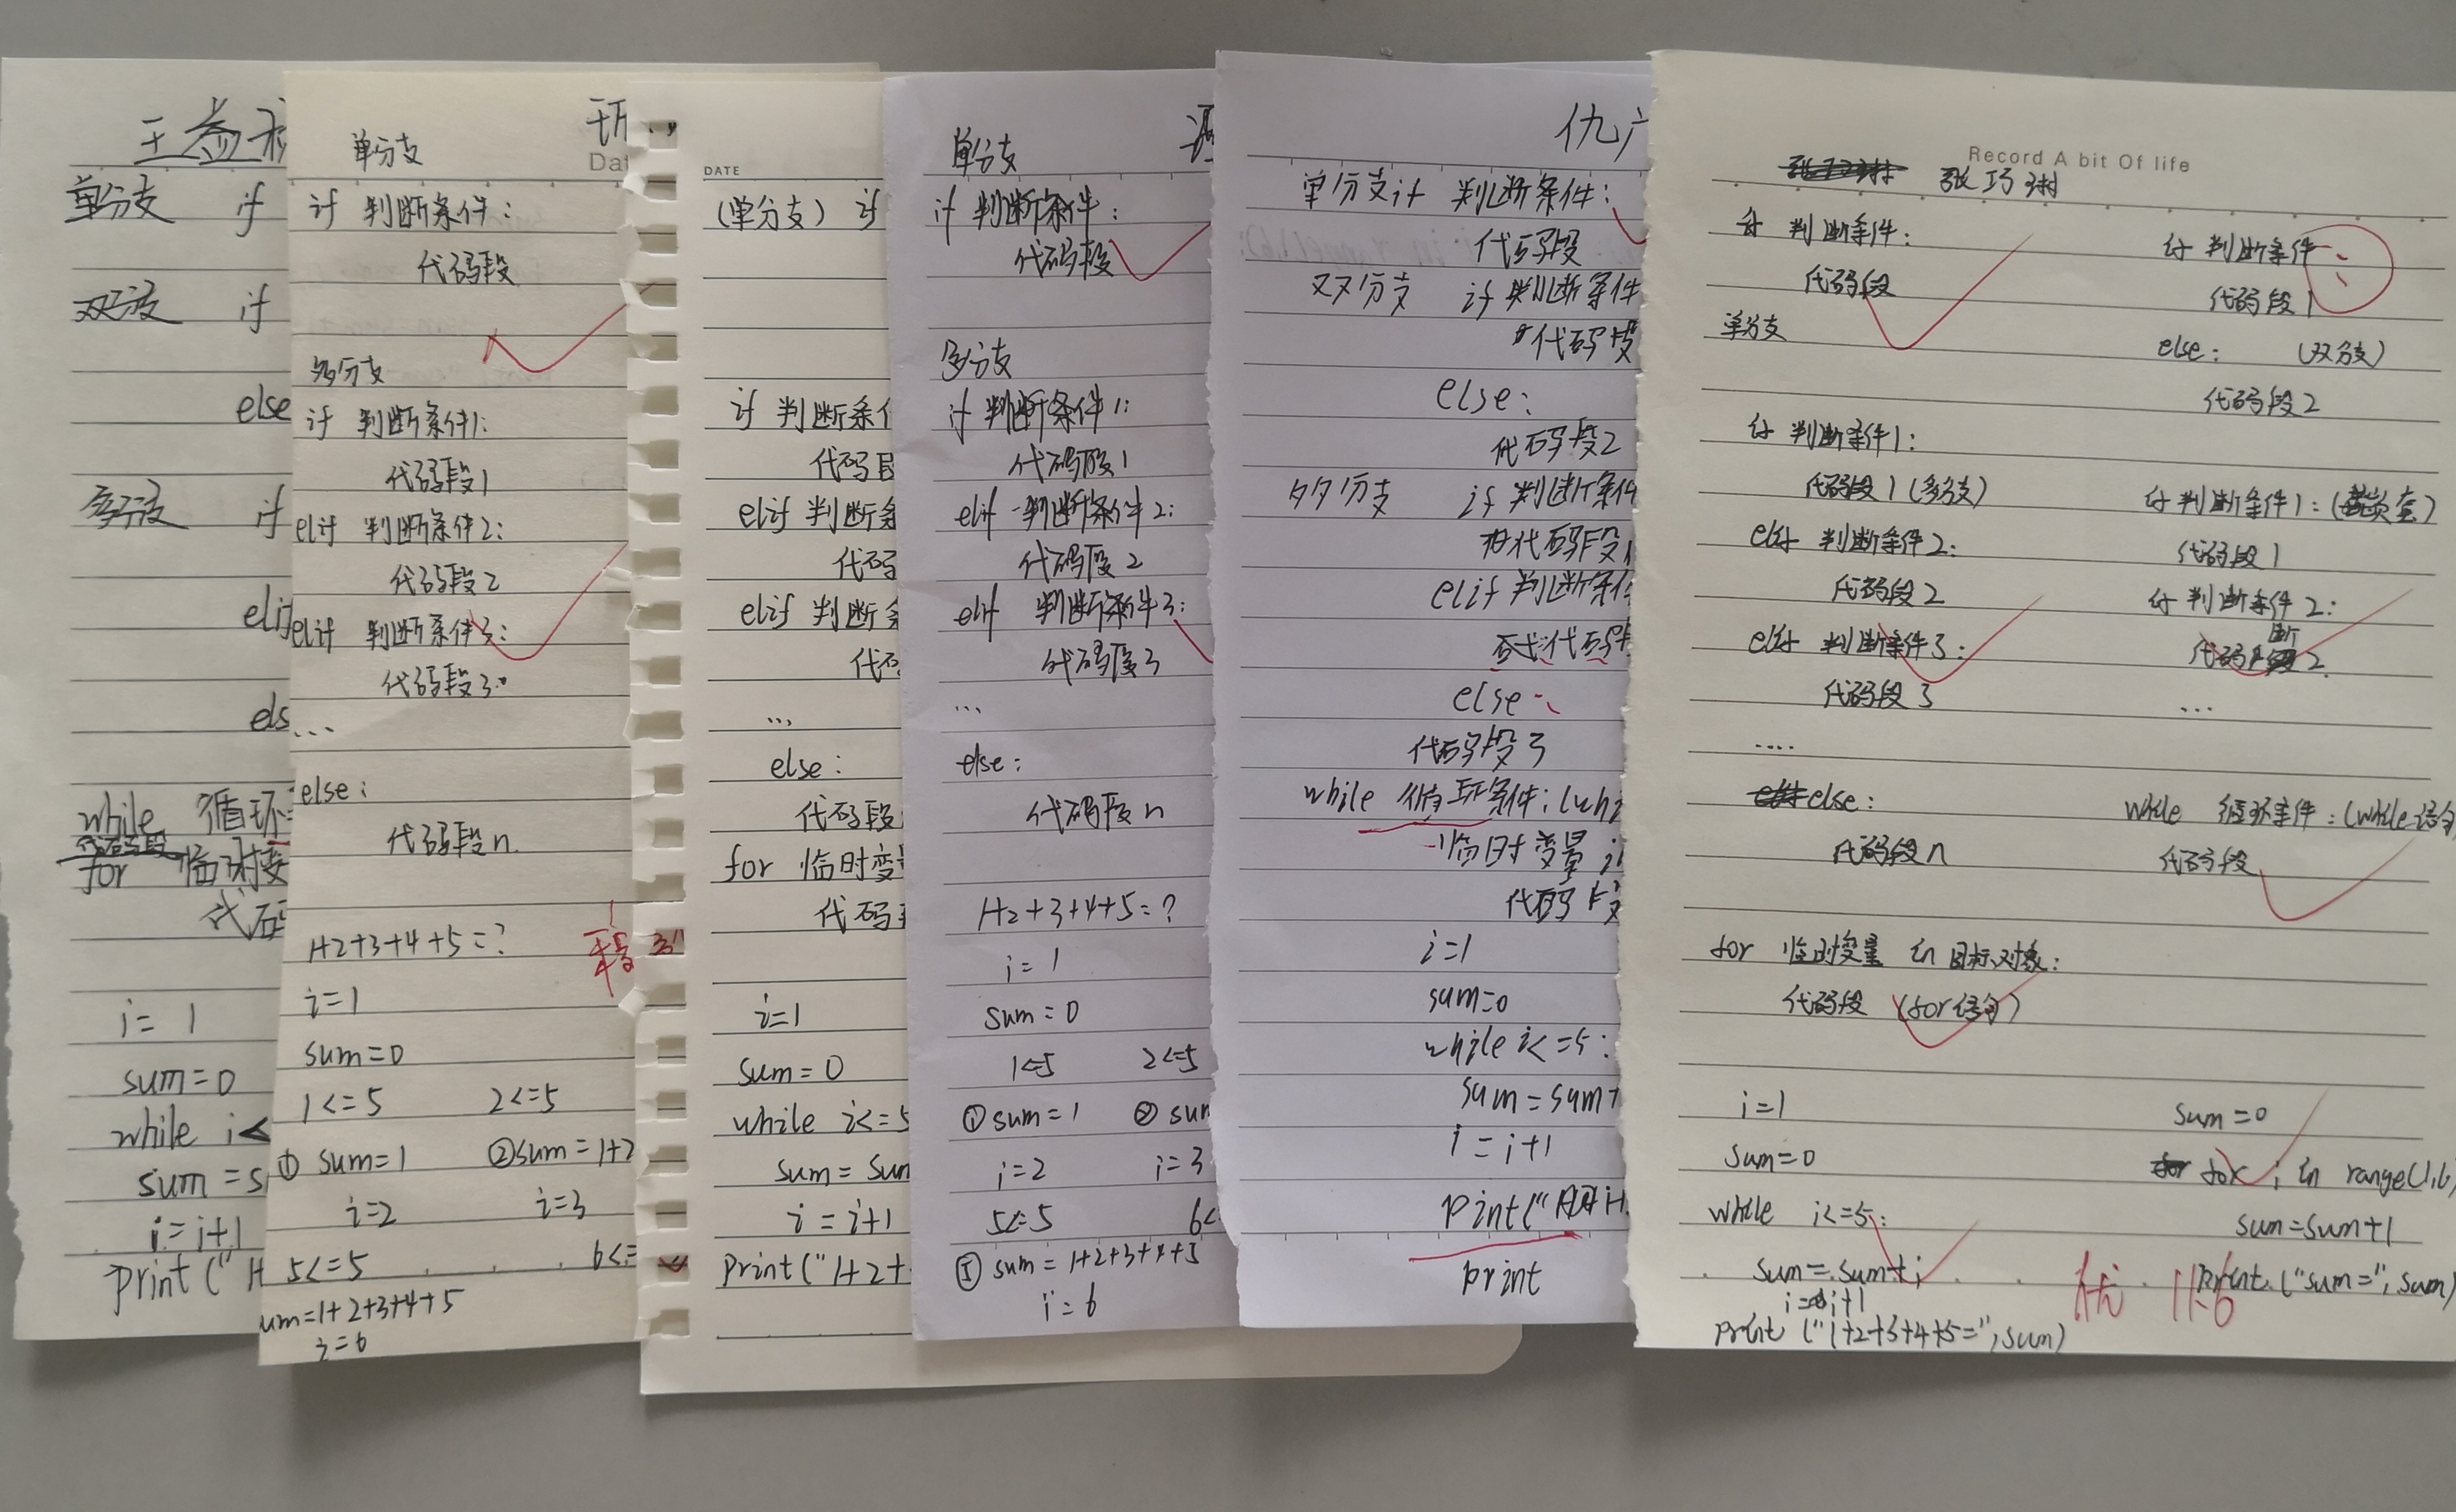 王益
单分支 if
双分支 if
else
多分支 if
elif
els
while 循环
for 临时变
代码
i= 1
sum=0
while i<
sum =s
i=i+1
print("1+
单分支
Dat
if 判断条件:
代码段
多分支
if 判断条件1:
代码段1
elif 判断条件2:
代码段2
elif 判断条件3:
代码段3
...
else:
代码段n.
1+2+3+4+5=?
i=1
sum=0
1<=5 2<=5
① sum=1 ②sum=1+2
i=2 i=3
5<=5 6<=
um=1+2+3+4+5
i=6
DATE
(单分支) if
if 判断条件
代码段
elif 判断条
代码
elif 判断条
代码
...
else:
代码段
for 临时变量
代码
i=1
sum=0
while i<=5
sum= sum
i=i+1
print("1+2+
单分支
if 判断条件:
代码段
多分支
if 判断条件1:
代码段1
elif 判断条件2:
代码段2
elif 判断条件3:
代码段3
...
else:
代码段n
1+2+3+4+5=?
i=1
sum=0
1<=5 2<=5
①sum=1 ②sum
i=2 i=3
5<=5 6<
⑤ sum=1+2+3+4+5
i=6
仇
单分支if 判断条件:
代码段
双分支 if 判断条件
代码段
else:
代码段2
多分支 if 判断条件
代码段
elif 判断条件
代码段
else:
代码段3
while 循环条件:(whi
临时变量 i
代码段
i=1
sum=0
while i<=5:
sum=sum+
i=i+1
print("
print
Record A bit Of life
张巧琳
if 判断条件:
代码段
单分支
if 判断条件1:
代码段1(多分支)
elif 判断条件2:
代码段2
elif 判断条件3:
代码段3
....
else:
代码段n
for 临时变量 in 目标对象:
代码段 (for语句)
i=1
sum=0
while i<=5:
sum=sum+i
i=i+1
print ("1+2+3+4+5=",sum)
if 判断条件:
代码段1
else: (双分支)
代码段2
if 判断条件1:(嵌套)
代码段1
if 判断条件2:
代码段2
...
while 循环条件:(while语句
代码段
sum=0
for i in range(1,6)
sum=sum+1
print("sum=",sum)
优 11.6